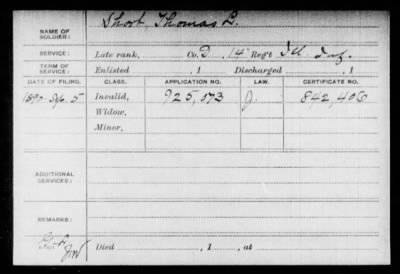 NAME OF SOLDIER: Short, Thomas L.
SERVICE: Late rank, Co. D, 14 Reg't Ill. Inf.
TERM OF SERVICE: Enlisted , 1 Discharged , 1
DATE OF FILING. CLASS. APPLICATION NO. LAW. CERTIFICATE NO.
1890. 5 Invalid, 925,173 J. 842,406
Widow,
Minor,
ADDITIONAL SERVICES:
REMARKS:
Died , 1 , at